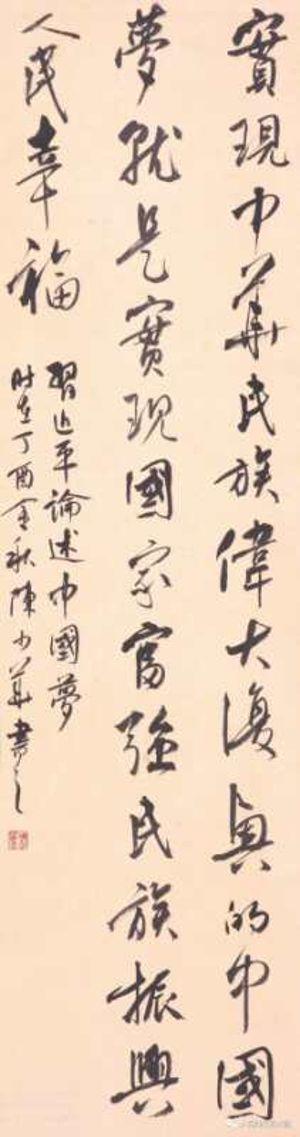 實現中華民族偉大復興的中國
夢就是實現國家富強民族振興
人民幸福
習近平論述中國夢
時在丁酉金秋陳少華書之